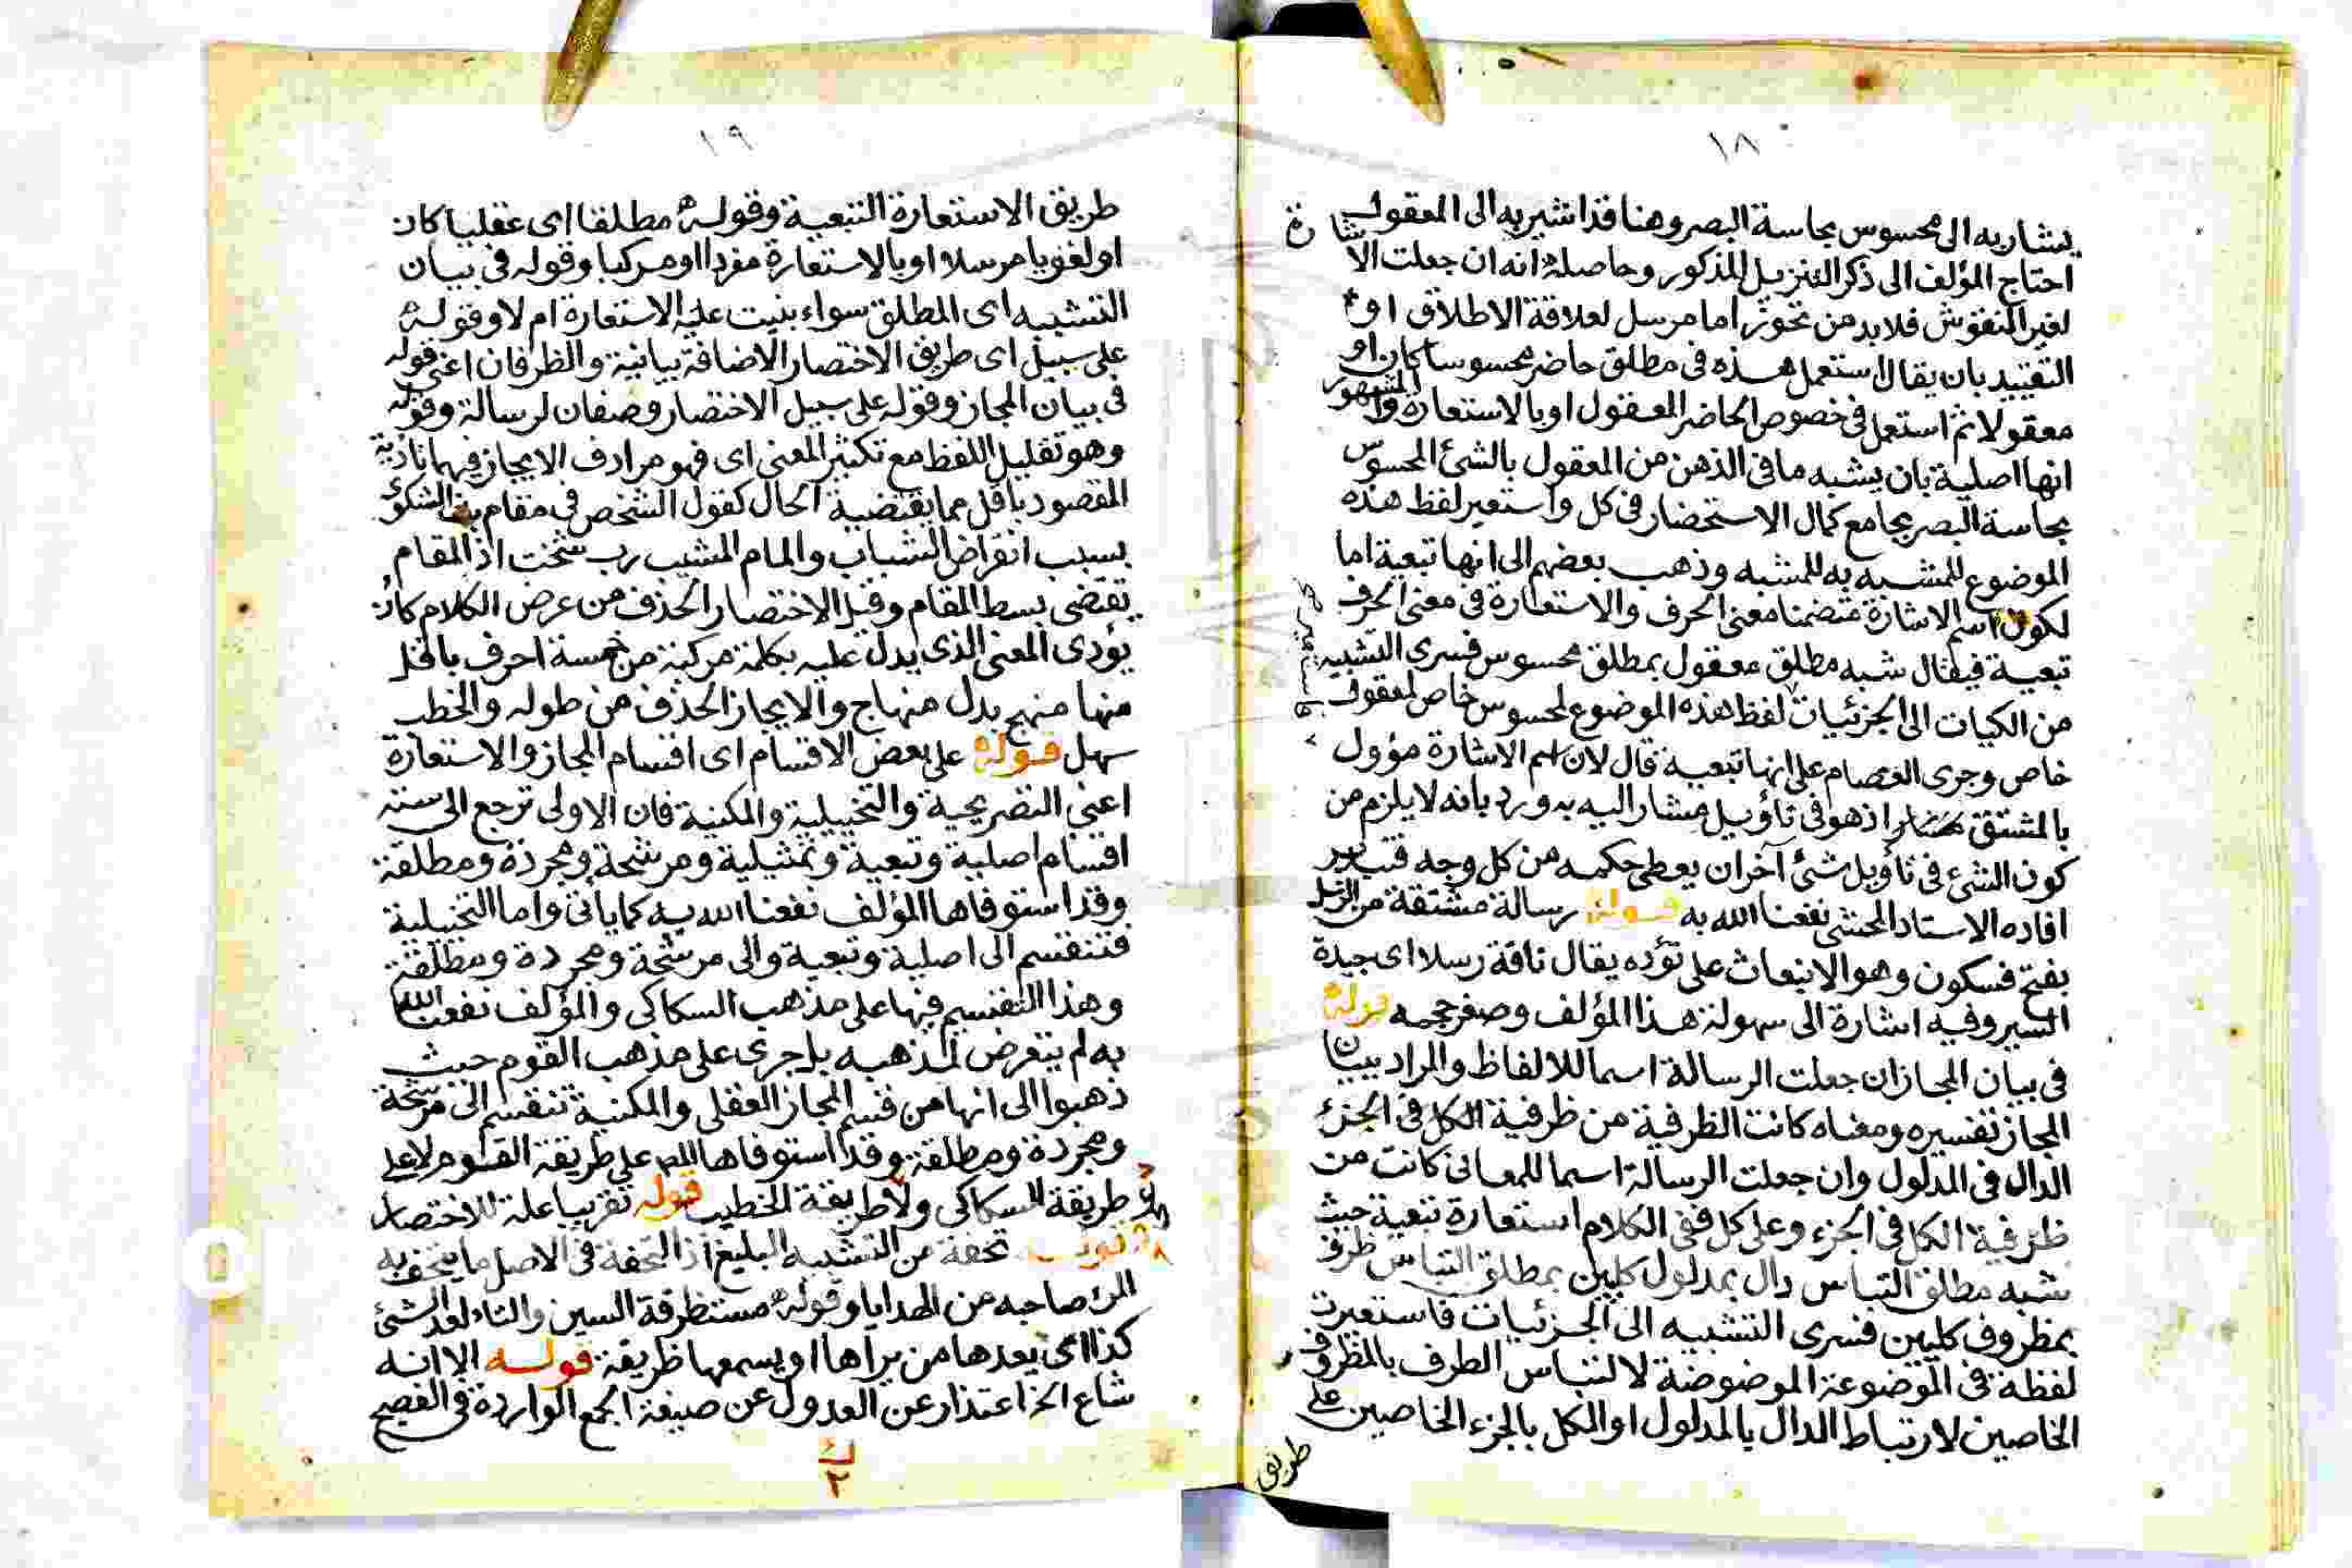 ١٨
يشار به الى محسوس بحاسة البصر وهنا قد اشير به الى المعقول
احتاج المؤلف الى ذكر التنزيل المذكور وحاصله انه ان جعلت الاشارة
لغير النقوش فلا بد من تجوز اما مرسل لعلاقة الاطلاق او
التقييد بان يقال استعمل هذه فى مطلق حاضر محسوسا كان او
معقولا ثم استعمل فى خصوص الحاضر المعقول او بالاستعارة والمشهور
انها اصلية بان يشبه ما فى الذهن من المعقول بالشئ المحسوس
بحاسة البصر بجامع كمال الاستحضار فى كل واستعير لفظ هذه
الموضوع للمشبه به للمشبه وذهب بعضهم الى انها تبعية اما
لكون اسم الاشارة متضمنا معنى الحرف والاستعارة فى معنى الحرف
تبعية فيقال شبه مطلق معقول بمطلق محسوس فسرى التشبيه
من الكيات الى الجزئيات لفظ هذه الموضوع لمحسوس خاص لمعقول
خاص وجرى العصام على انها تبعية قال لان اسم الاشارة مؤول
بالمشتق اذ هو فى تأويل مشار اليه به ورد بانه لا يلزم من
كون الشئ فى تأويل شئ آخر ان يعطى حكمه من كل وجه فتدبر
افاده الاستاد المحشى نفعنا الله به قوله رسالة مشتقة من الرسل
بفتح فسكون وهو الانبعاث على تؤده يقال ناقة رسلا اى جيدة
السير وفيه اشارة الى سهولة هذا المؤلف وصغر حجمه قوله
فى بيان المجاز ان جعلت الرسالة اسما للالفاظ والمراد ببيان
المجاز تفسيره ومعناه كانت الظرفية من ظرفية الكل فى الجزء
الدال فى المدلول وان جعلت الرسالة اسما للمعانى كانت من
ظرفية الكل فى الجزء وعلى كل ففى الكلام استعارة تبعية حيث
شبه مطلق التباس دال بمدلول كليين بمطلق التباس ظرف
بمظروف كليين فسرى التشبيه الى الجزئيات فاستعيرت
لفظة فى الموضوعة الموضوضة لالتباس الظرف بالمظروف
الخاصين لارتباط الدال بالمدلول او الكل بالجزء الخاصين على
طريق
١٩
طريق الاستعارة التبعية وقوله مطلقا اى عقليا كان
او لغويا مرسلا او بالاستعارة مفردا او مركبا وقوله فى بيان
التشبيه اى المطلق سواء بنيت عليه الاستعارة ام لا وقوله
على سبيل اى طريق الاختصار الاضافة بيانية والظرفان اعنى قوله
فى بيان المجاز وقوله على سبيل الاختصار وصفان لرسالة وقوله
وهو تقليل اللفظ مع تكثير المعنى اى فهو مرادف الايجاز فيهما تأدية
المقصود باقل مما يقتضية الحال كقول الشخص فى مقام الشكوى
بسبب انقراض الشباب والمام المشيب رب شخت اذ المقام
يقتضى بسط المقام وقيل الاختصار الحذف من عرض الكلام كان
يؤدى المعنى الذى يدل عليه بكلمة مركبة من خمسة احرف باقل
منها منهج بدل منهاج والايجاز الحذف من طوله والخطب
سهل قوله على بعض الاقسام اى اقسام المجاز والاستعارة
اعنى التصريحية والتخييلية والمكنية فان الاولى ترجع الى ستة
اقسام اصلية وتبعية وتمثيلية ومرشحة ومجردة ومطلقة
وقد استوفاها المؤلف نفعنا الله به كما يأتى واما التخييلية
فتنقسم الى اصلية وتبعية والى مرشحة ومجردة ومطلقة
وهذا التقسيم فيها على مذهب السكاكى والمؤلف نفعنا الله
به لم يتعرض لمذهبه بل جرى على مذهب القوم حيث
ذهبوا الى انها من قسم المجاز العقلى والمكنية تنقسم الى مرشحة
ومجردة ومطلقة وقد استوفاها على طريقة القوم لا على
طريقة السكاكى ولا طريقة الخطيب قوله تقريبا علة للاختصار
قوله تحفة من التشبيه البليغ اذ التحفة فى الاصل ما يتحف به
المرء صاحبه من الهدايا وقوله مستظرفة السين والتاء لعد الشئ
كذا اى يعدها من يراها او يسمعها ظريفة قوله الا انه
شاع الخ اعتذار عن العدول عن صيغة الجمع الواردة فى الفصيح
٢